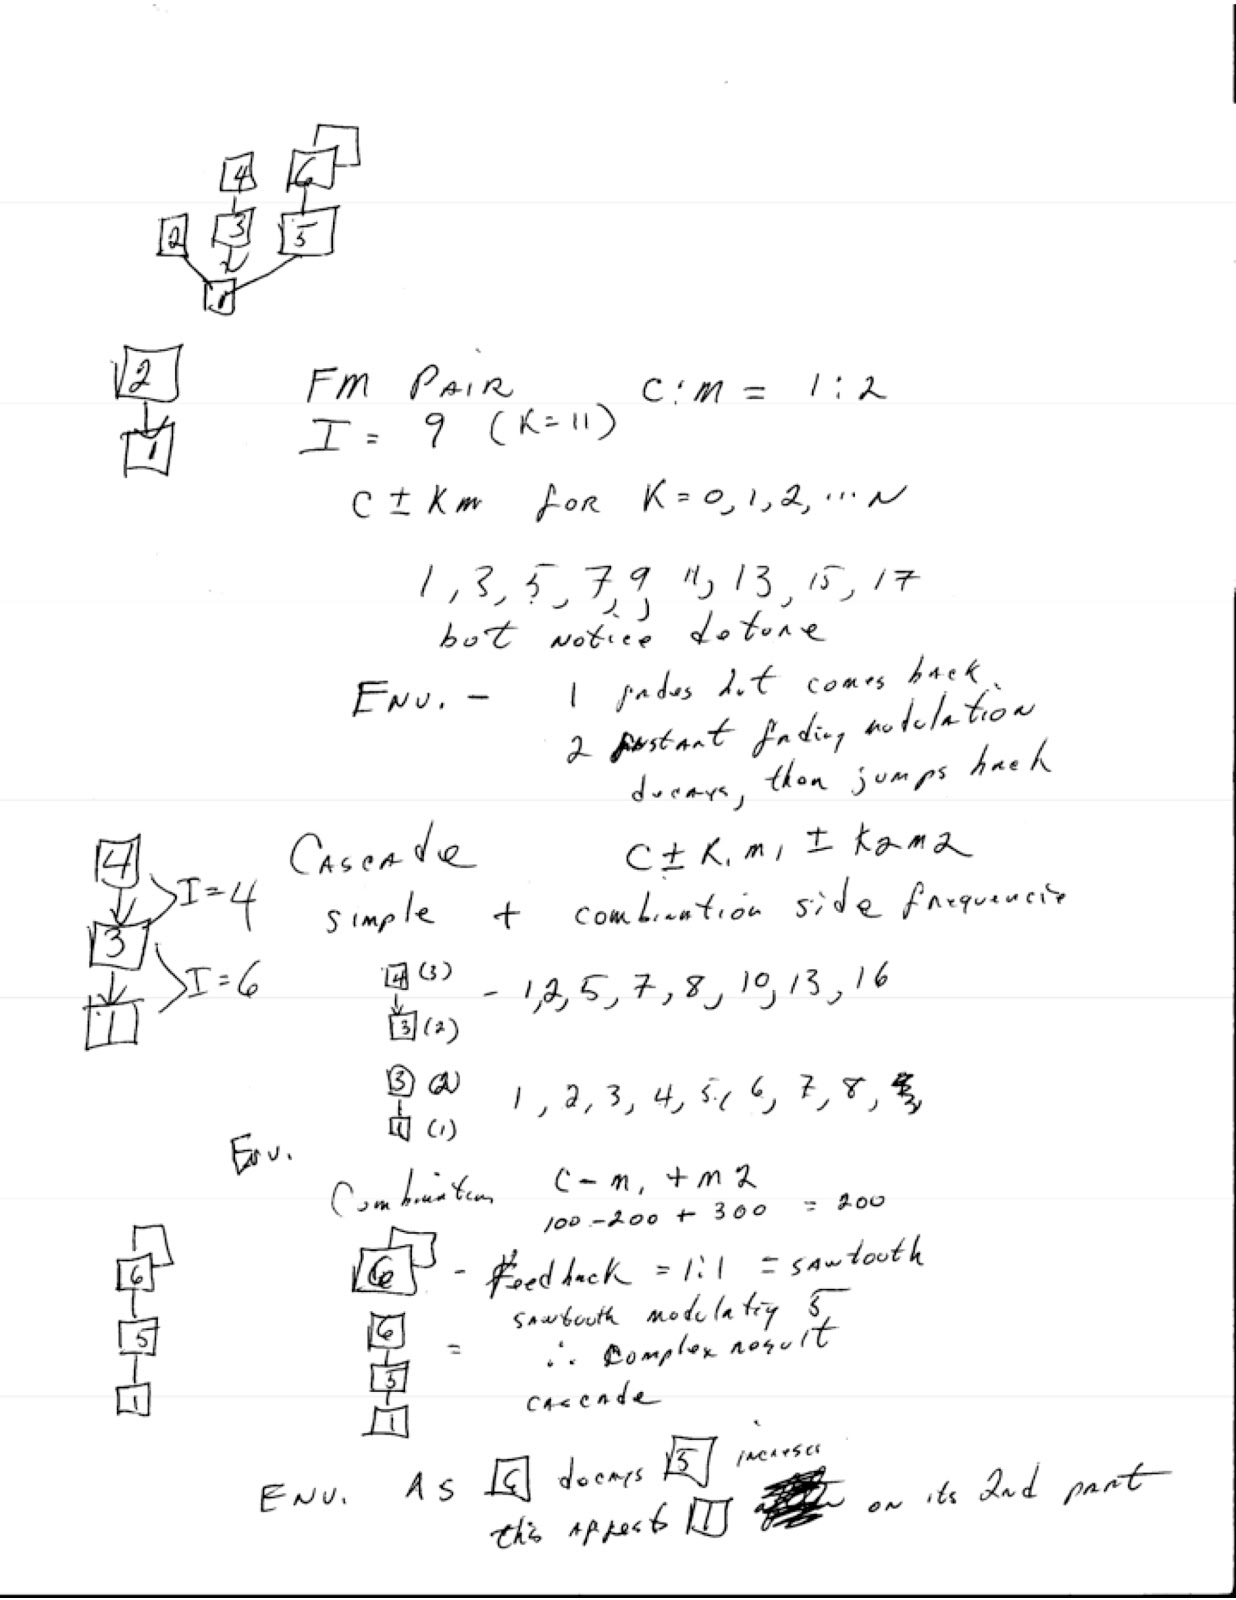 4 6
2 3 5
1
2
1
FM PAIR C:M = 1:2
I = 9 (K=11)
C ± Km for K=0,1,2,...N
1,3,5,7,9,11,13,15,17
but notice detune
ENV. - 1 fades but comes back
2 instant fading modulation
decays, then jumps back
4
3
1
I=4
I=6
CASCADE C ± K1m1 ± K2m2
simple + combination side frequencies
4 (3)
3 (2)
- 1,2,5,7,8,10,13,16
3 (2)
1 (1)
1,2,3,4,5,6,7,8,
Env.
Combination C - m1 + m2
100-200 + 300 = 200
6
5
1
6 - Feedback = 1:1 = sawtooth
sawtooth modulating 5
6
5
1
= ∴ complex result
cascade
ENV. As 6 decays 5 increases
this affects 1 on its 2nd part